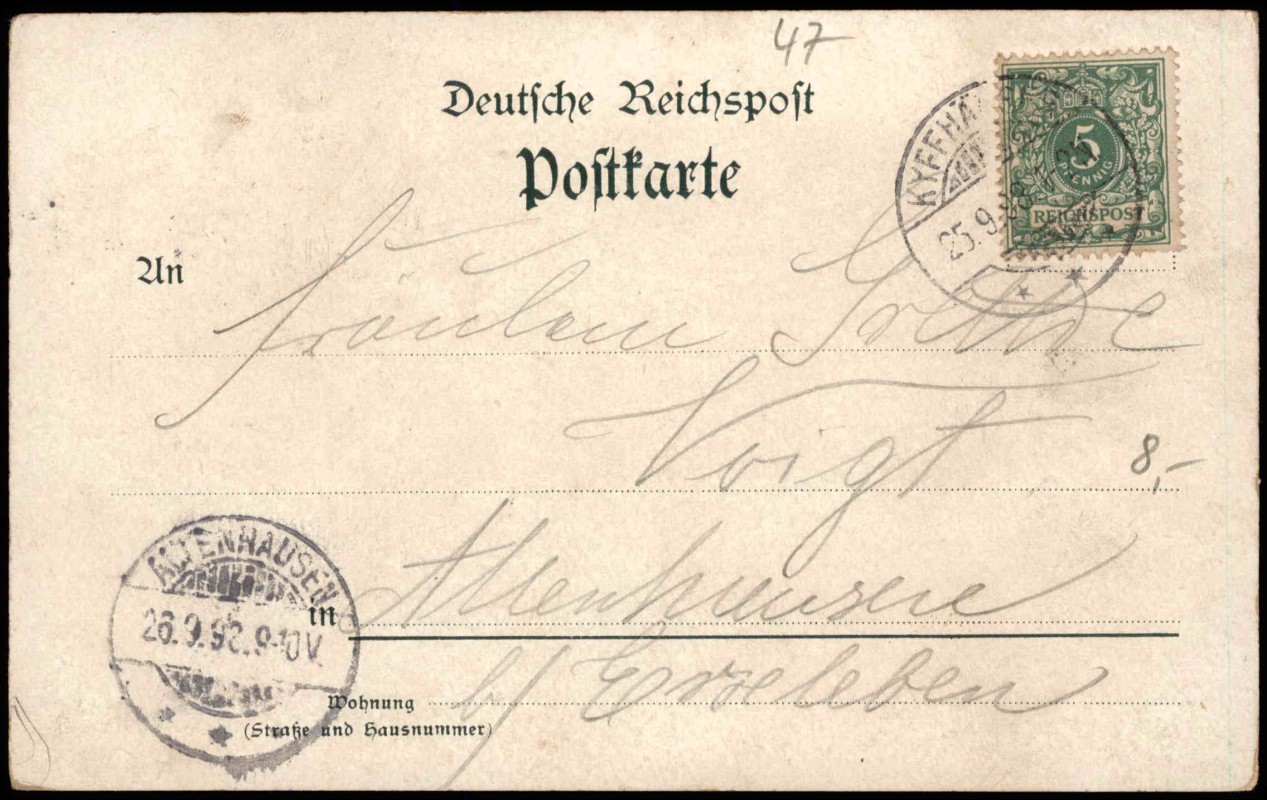 47
Deutsche Reichspost
Postkarte
KYFFHÄ
25.9.98
5
PFENNIG
REICHSPOST
An
Fräulein Grethe
Voigt
8,-
ALTENHAUSEN
26.9.98.9-10V.
in Altenhausen
b/ Erxleben
Wohnung
(Straße und Hausnummer)